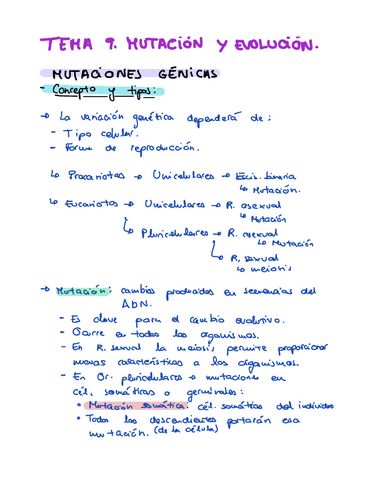 TEMA 9. MUTACIÓN Y EVOLUCIÓN.
MUTACIONES GÉNICAS
- Concepto y tipos:
→ La variación genética dependerá de:
- Tipo celular.
- Forma de reproducción.
↳ Procariotas → Unicelulares → Escis. binaria
↳ Mutación.
↳ Eucariotas → Unicelulares → R. asexual
↳ Mutación
↳ Pluricelulares → R. asexual
↳ Mutación
↳ R. sexual
↳ meiosis
→ Mutación: cambios producidos en secuencias del
ADN.
- Es clave para el cambio evolutivo.
- Ocurre en todos los organismos.
- En R. sexual la meiosis, permite proporcionar
nuevas características a los organismos.
- En Or. pluricelulares → mutaciones en
cél. somáticas o germinales:
• Mutación somática: cél. somáticas del individuo
• Todos los descendientes portarán esa
mutación. (de la célula)